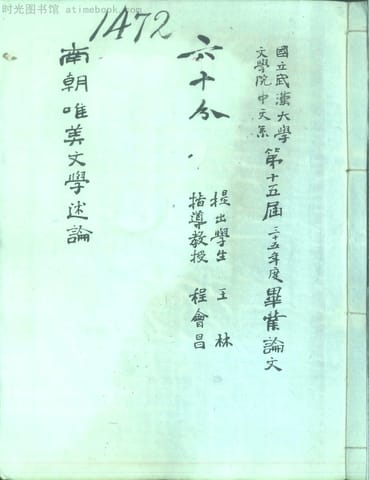 时光图书馆 atimebook.com
1472
國立武漢大學
文學院中文系
第十五屆三十五年度畢業論文
提出學生 王林
指導教授 程會昌
六十分
南朝唯美文學述論